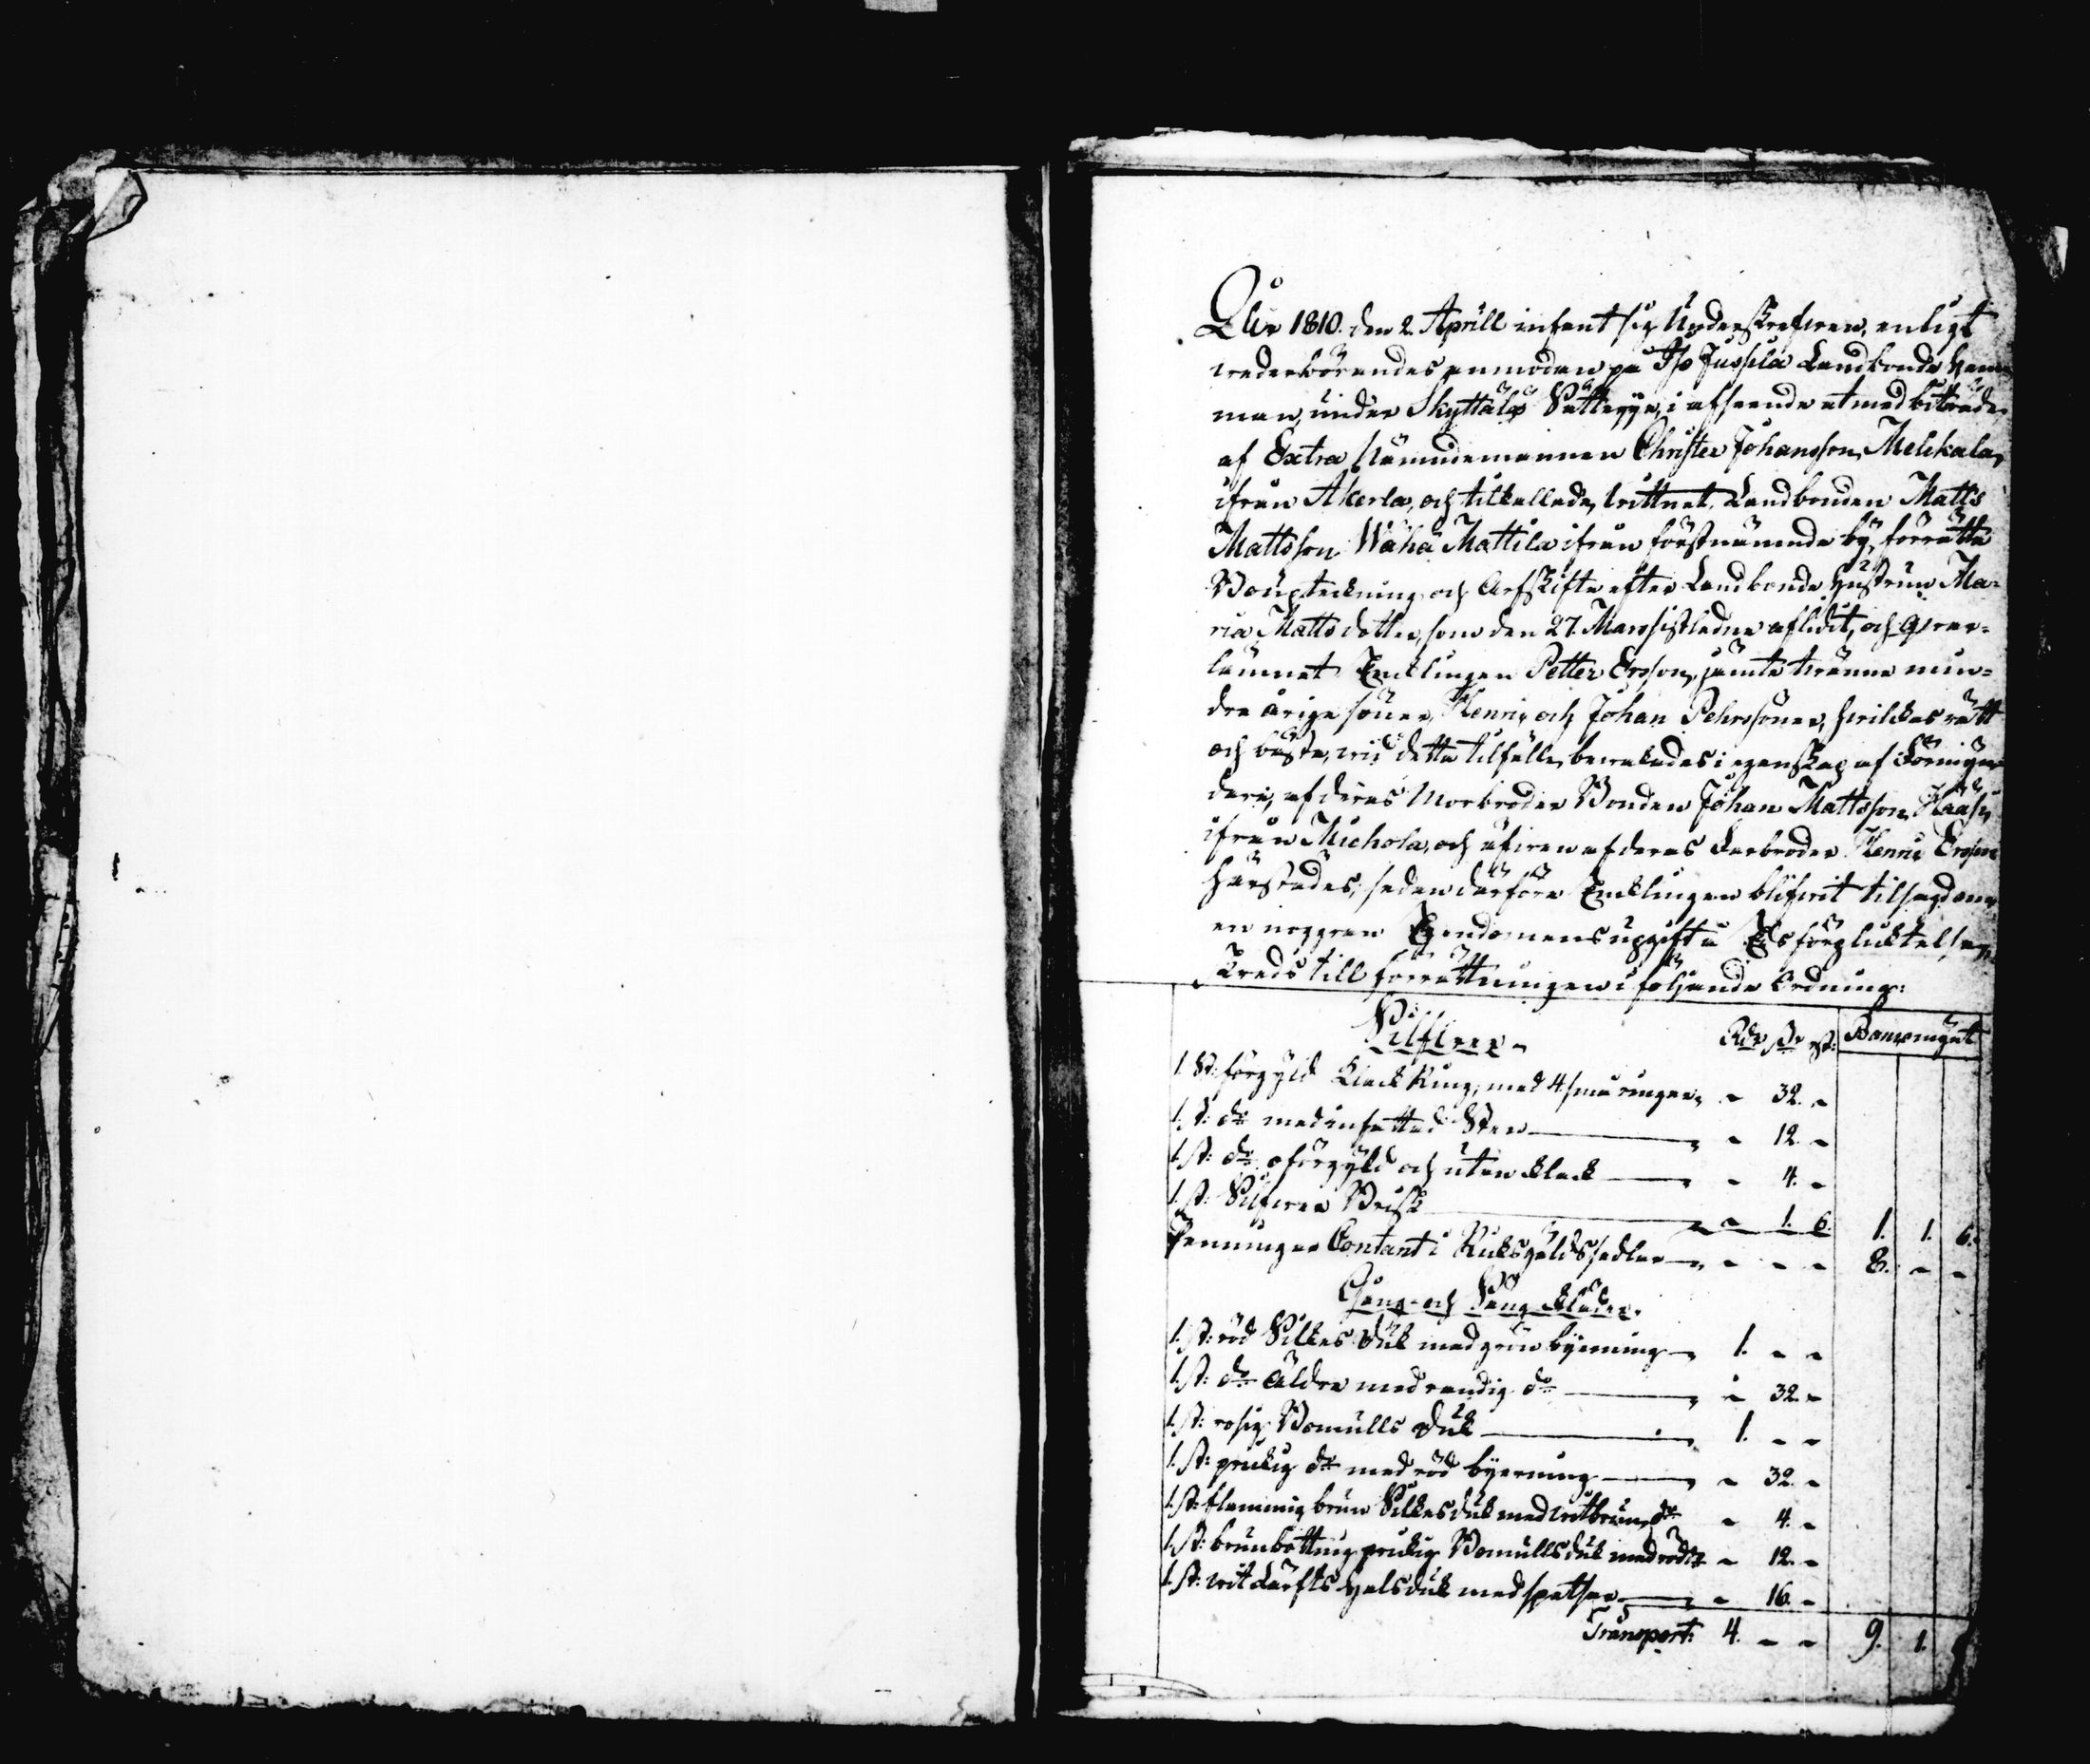 Åhr 1810. den 2. Aprill infant sig Underskrefven, enligt
vederbörandes anmodan på Iso Jussila Landbonde Hem¬
man, under Skyttälä Sätterije, i afseende at med biträde
af Extra Nämndemannen Christer Johansson Melckala,
ifrån Akerla, och tilkallade, vittnet Landbonden Matts
Mattsson Wähä Mattila ifrån förstnämnde by, förrätta
Bouptekning och Arfskifte efter Landbonde Hustrun Ma¬
ria Matts dotter, som den 27. Mars sistledne aflidit, och qvar¬
lämnat Encklingen Petter Ersson, jämte tvänne min¬
dre årige söner, Henric och Johan Pehrssöner, hvilckas rätt
och bästa, vid detta tilfälle bevakades i egenskap af Förmyn¬
dare, af deras Morbroder Bonden Johan Mattsson Haasi,
ifrån Michola, och äfven af deras Farbroder Henric Ersson
härstädes; sedan därföre Encklingen blifvit tilsagd om,
en noggran Egendomens upgift à Eds förplicktelse,
skreds till förrättningen i följande Ordning:
Silfver. Rdr sk: rst: Bancomynt
1. St: förgyld klack Ring, med 4 små ringar, - 32. -
1. st: do med infattad Sten - 12. -
1. st: do oförgyld och utan klack - 4. -
1. st: Silfver Brisk - 1. 6. 1. 1. 6.
Penningar Contant i Riksgälds sedlar - - - 8. - -
Gång- och Säng Kläder.
1. st: röd Silkes Duk med grön byerning 1. - -
1. st: do Äldre med randig do - 32. -
1. st: rosig Bomulls Duk 1. - -
1. st: prickig do med röd byerning - 32. -
1. st: flammig brun Silkes duk med vitbrun do - 4. -
1. st: brunbottnig prickig Bomulls duk med röd do - 12. -
1. st: vit Lärfts Halsduk med spetsar - 16. -
Transport: 4. - - 9. 1.